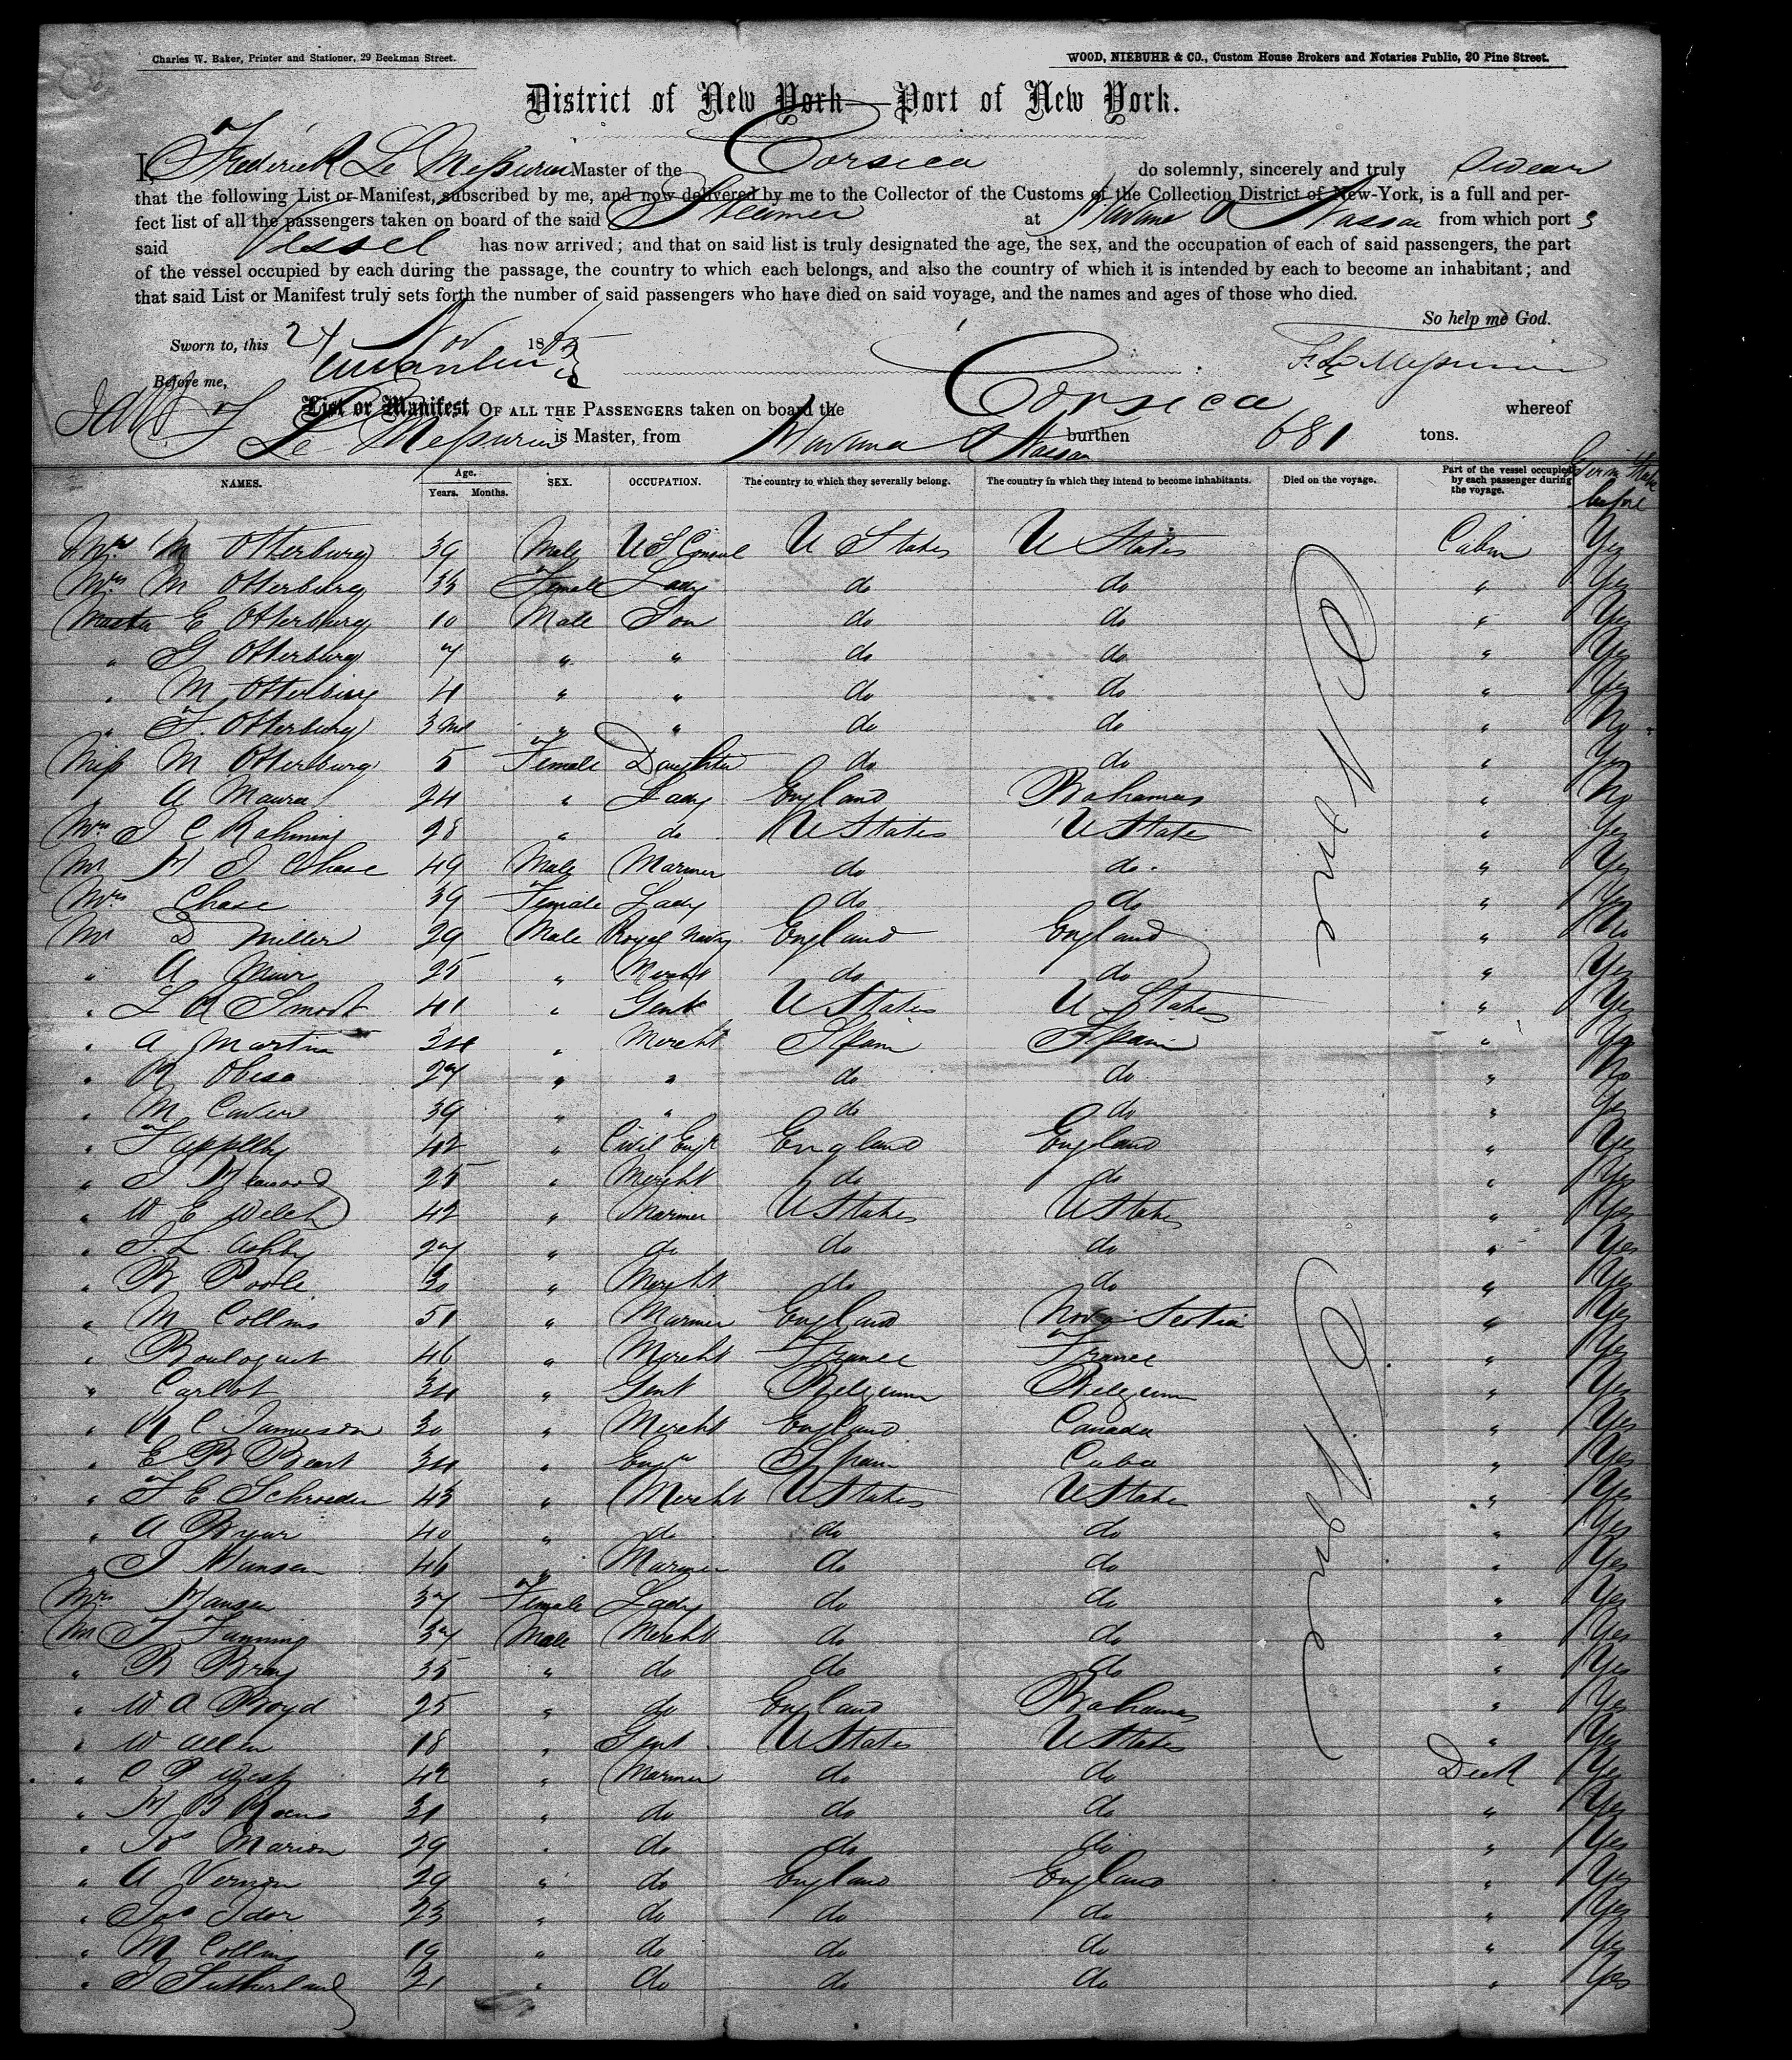 Charles W. Baker, Printer and Stationer, 29 Beekman Street. WOOD, NIEBUHR & CO., Custom House Brokers and Notaries Public, 20 Pine Street.
District of New York—Port of New York.
I, Frederick Le Meßurier Master of the Corsica do solemnly, sincerely and truly swear
that the following List or Manifest, subscribed by me, and now delivered by me to the Collector of the Customs of the Collection District of New-York, is a full and per-
fect list of all the passengers taken on board of the said Steamer at Havana & Nassau from which port s
said Vessel has now arrived; and that on said list is truly designated the age, the sex, and the occupation of each of said passengers, the part
of the vessel occupied by each during the passage, the country to which each belongs, and also the country of which it is intended by each to become an inhabitant; and
that said List or Manifest truly sets forth the number of said passengers who have died on said voyage, and the names and ages of those who died.
So help me God.
Sworn to, this 24 Nov 1865 F. Le Meßurier
Before me,
List or Manifest OF ALL THE PASSENGERS taken on board the Corsica whereof
F Le Meßurier is Master, from Havana & Nassau burthen 681 tons.
NAMES. Age. Years. Months. SEX. OCCUPATION. The country to which they severally belong. The country in which they intend to become inhabitants. Died on the voyage. Part of the vessel occupied by each passenger during the voyage. before
M Otterburg 39 Male U S Consul U States U States Cabin Yes
Mrs M Otterburg 33 Female Lady do do " Yes
Master E Otterburg 10 Male Son do do " Yes
" G Otterburg 7 " " do do " Yes
" M Otterburg 4 " " do do " Yes
" F. Otterburg 3 Ms " " do do " No
Miß M Otterburg 5 Female Daughter do do " Yes
" A Maura 24 " Lady England Bahamas " No
Mrs J C Rahming 28 " do U States U States " Yes
Mr H J Chase 49 Male Mariner do do " Yes
Mrs Chase 39 Female Lady do do " Yes
Mr D Miller 29 Male Royal Navy England England " No
" A Muir 25 " Mercht do do " Yes
" L A Smoot 41 " Gent U States U States " Yes
" A Martin 34 " Mercht Spain Spain " Yes
" R Obeso 27 " " do do " No
" M 39 " " do do " Yes
" F Appelby 42 " Civil Engr England England " Yes
" J 25 " Mercht do do " Yes
" W E Welch 42 " Mariner U States U States " Yes
" J. L. Ashby 27 " do do do " Yes
" B Poole 30 " Mercht do do " Yes
" M Collins 51 " Mariner England Nova Scotia " Yes
" 46 " Mercht France France " Yes
" Carlot 34 " Gent Belgium Belgium " Yes
" R C Jamieson 30 " Mercht England Canada " Yes
" E B 34 " Engr Spain Cuba " Yes
" F E Schroeder 43 " Mercht U States U States " Yes
" A Bryer 40 " do do do " Yes
" J Hansen 46 " Mariner do do " Yes
Mrs Hansen 37 Female Lady do do " Yes
Mr F Fanning 37 Male Mercht do do " Yes
" B Bray 35 " do do do " Yes
" W A Boyd 25 " do England Bahamas " Yes
" W Allen 18 " Gent U States U States " Yes
" C P West 42 " Mariner do do Deck Yes
" H B 31 " do do do " Yes
" Jos Marion 29 " do do do " Yes
" A Vernon 29 " do England England " Yes
" Jos Idor 23 " do do do " Yes
" M Collins 19 " do do do " Yes
" J Sutherland 21 " do do do " Yes